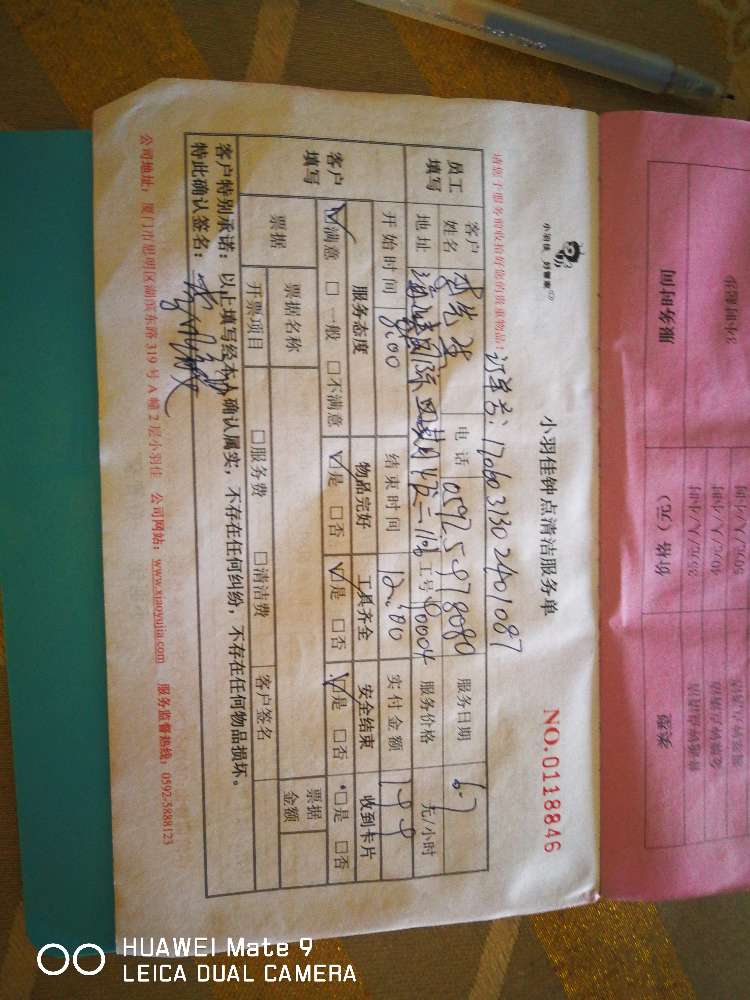 小羽佳 好管家
小羽佳钟点清洁服务单
NO.0118846
请您于服务前收拾好您的贵重物品!
订单号:
员工填写
客户姓名
电话 0592 5978080
服务日期 6.7
地址
工号 90004
服务价格 元/小时
开始时间 8:00
结束时间 12:00
实付金额 199
客户填写
服务态度 物品完好 工具齐全 安全结束 收到卡片
☑满意 □一般 □不满意 ☑是 □否 ☑是 □否 ☑是 □否 *□是 □否
票据 票据名称 票据金额
开票项目 □服务费 □清洁费 客户签名
客户特别承诺:以上填写经本人确认属实,不存在任何纠纷,不存在任何物品损坏。
特此确认签名:
公司地址:厦门市思明区湖滨东路319号A幢2层小羽佳 公司网站:www.xiaoyujia.com 服务监督热线:0592-5888123
服务时间 价格(元) 类额
3小时起步
35元/人/小时
40元/人/小时
50元/人/小时